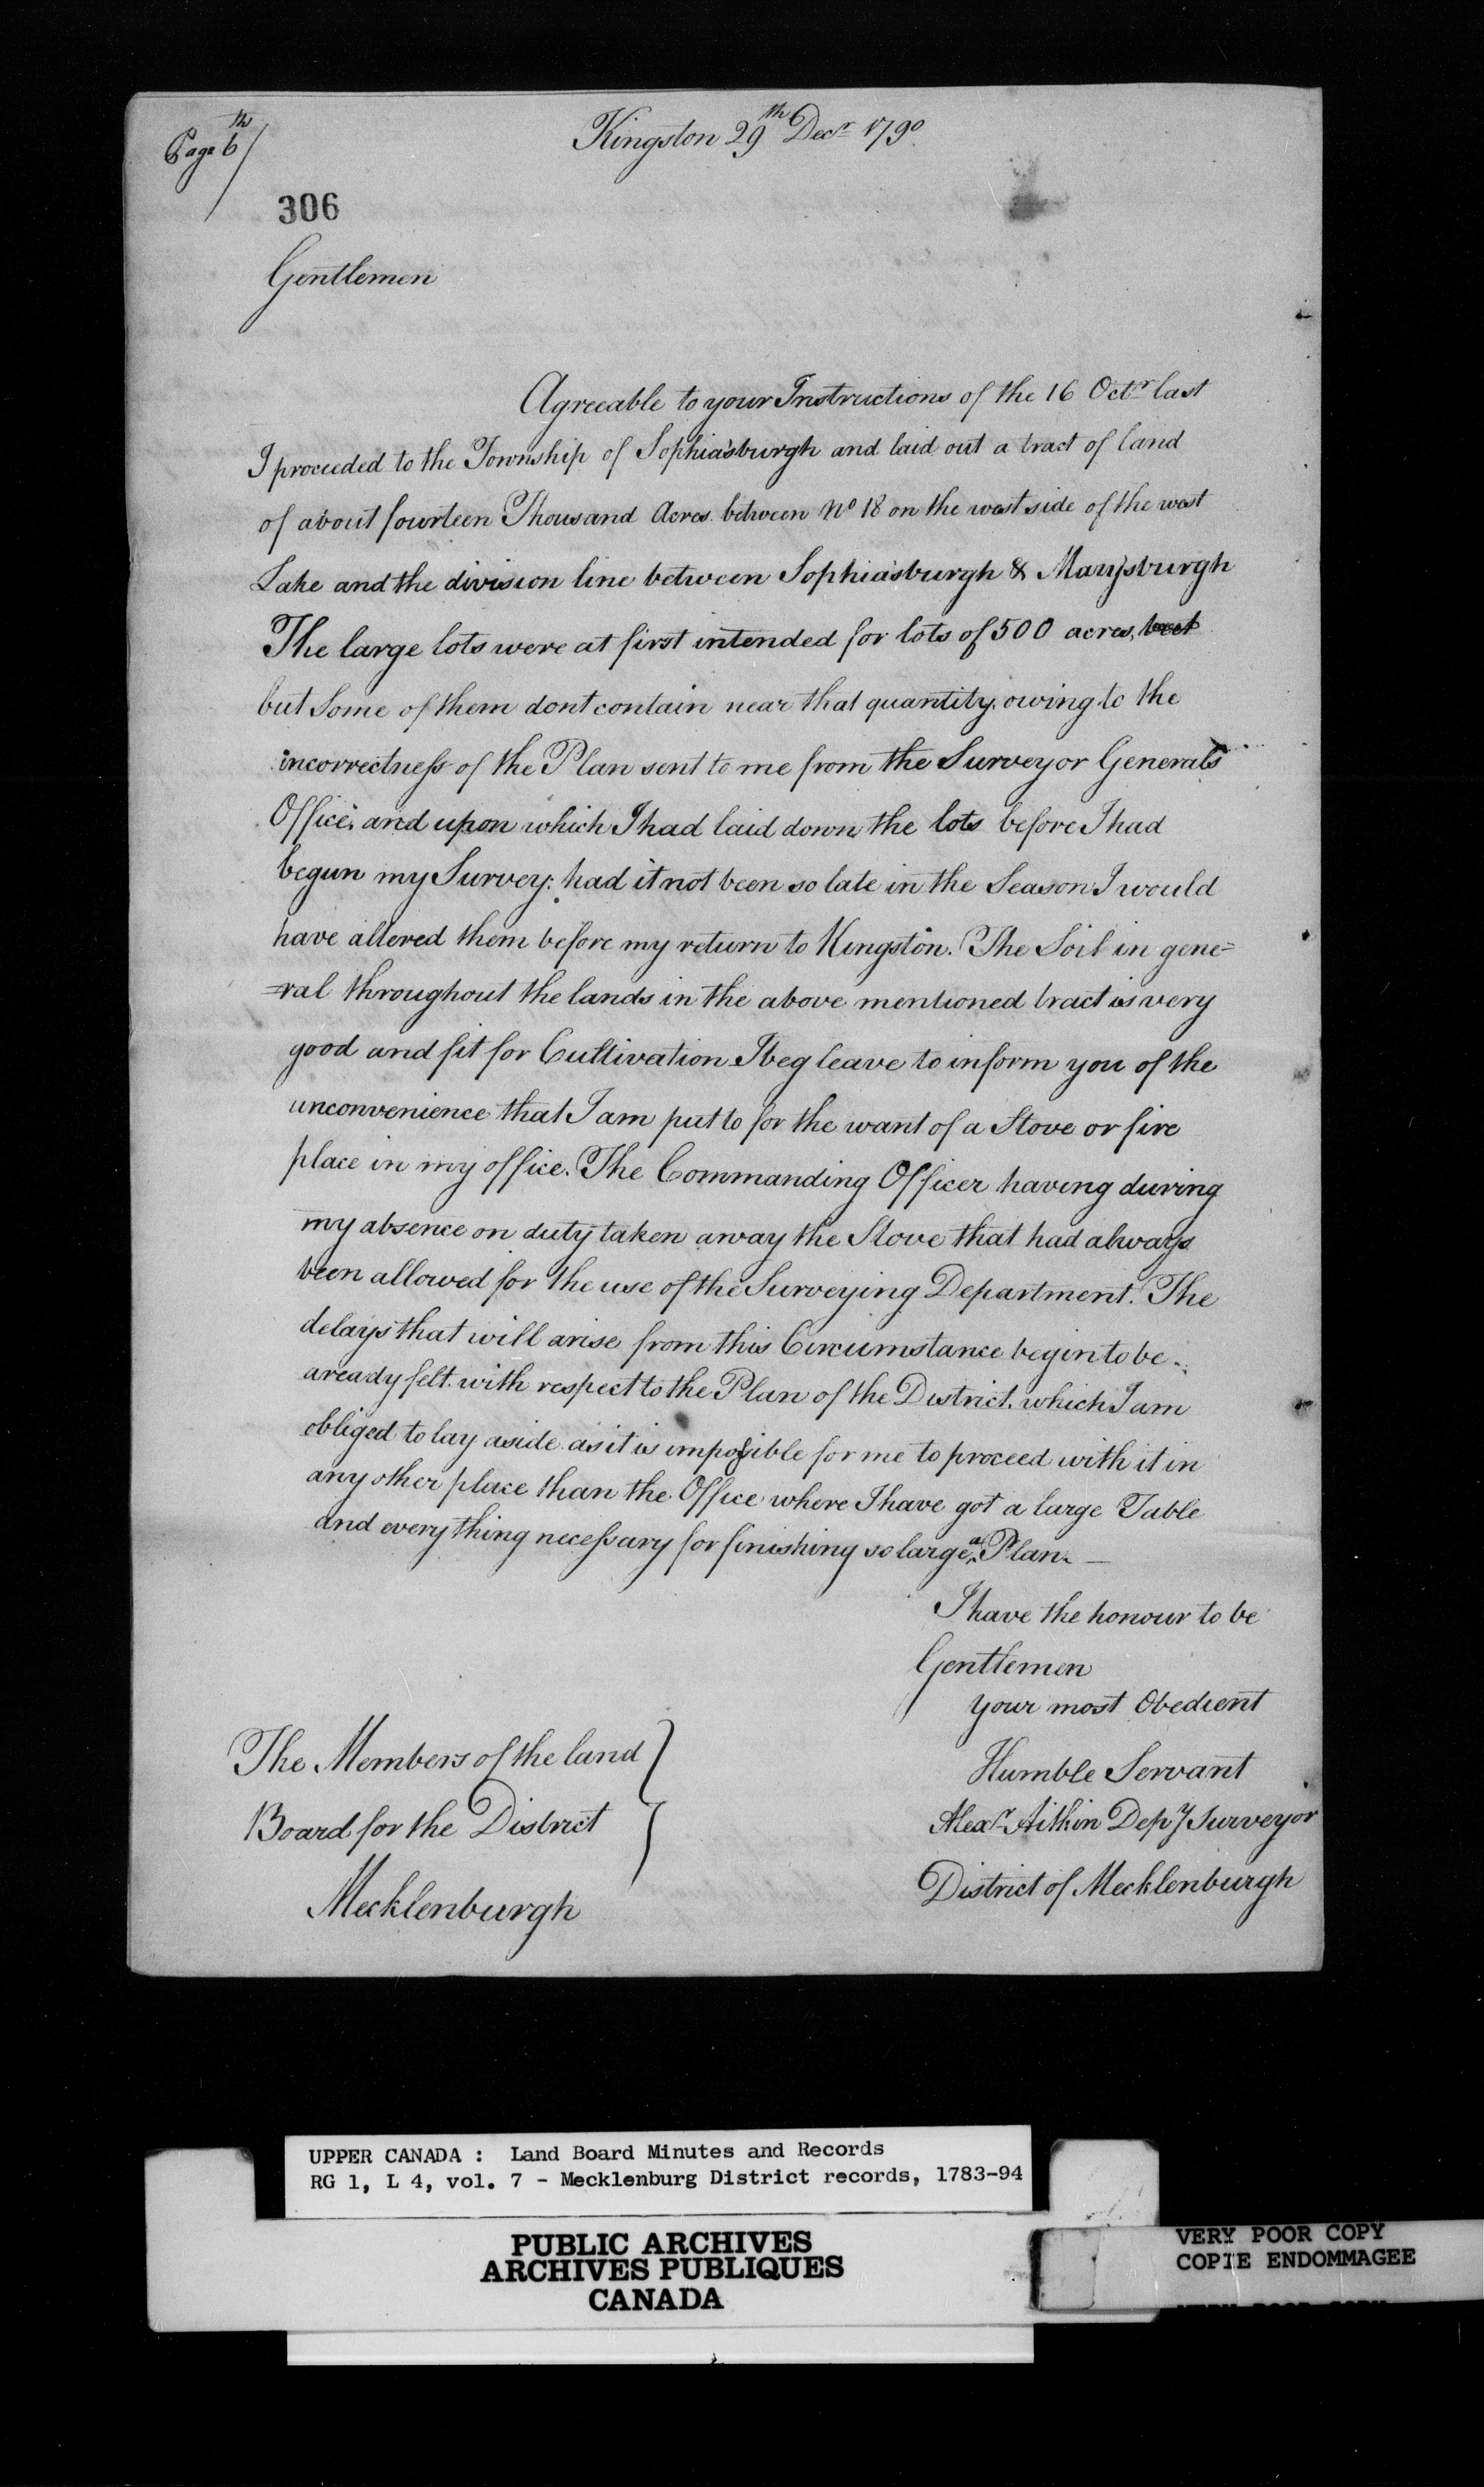 Page 6th/
Kingston 29th Decr 1790.
306
Gentlemen
Agreeable to your Instructions of the 16 Octr last
I proceeded to the Township of Sophiasburgh and laid out a tract of land
of about fourteen Thousand Acres between No 18 on the west side of the west
Lake and the division line between Sophiasburgh & Marysburgh
The large lots were at first intended for lots of 500 acres, but
but Some of them dont contain near that quantity, owing to the
incorrectness of the Plan sent to me from the Surveyor Generals
Office, and upon which I had laid down the lots before I had
begun my Survey; had it not been so late in the Season I would
have altered them before my return to Kingston. The Soil in gene=
=ral throughout the lands in the above mentioned tract is very
good and fit for Cultivation I beg leave to inform you of the
unconvenience that I am put to for the want of a Stove or fire
place in my office. The Commanding Officer having during
my absence on duty taken away the Stove that had always
been allowed for the use of the Surveying Department. The
delays that will arise from this Circumstance begin to be
aready felt with respect to the Plan of the District, which I am
obliged to lay aside as it is impossible for me to proceed with it in
any other place than the Office where I have got a large Table
and every thing necessary for finishing so large a Plan. —
I have the honour to be
Gentlemen
your most Obedient
Humble Servant
Alexr Aitkin Depy Surveyor
District of Mecklenburgh
The Members of the land
Board for the District
Mecklenburgh
UPPER CANADA : Land Board Minutes and Records
RG 1, L 4, vol. 7 - Mecklenburg District records, 1783-94
PUBLIC ARCHIVES
ARCHIVES PUBLIQUES
CANADA
VERY POOR COPY
COPIE ENDOMMAGEE
VERY POOR COPY